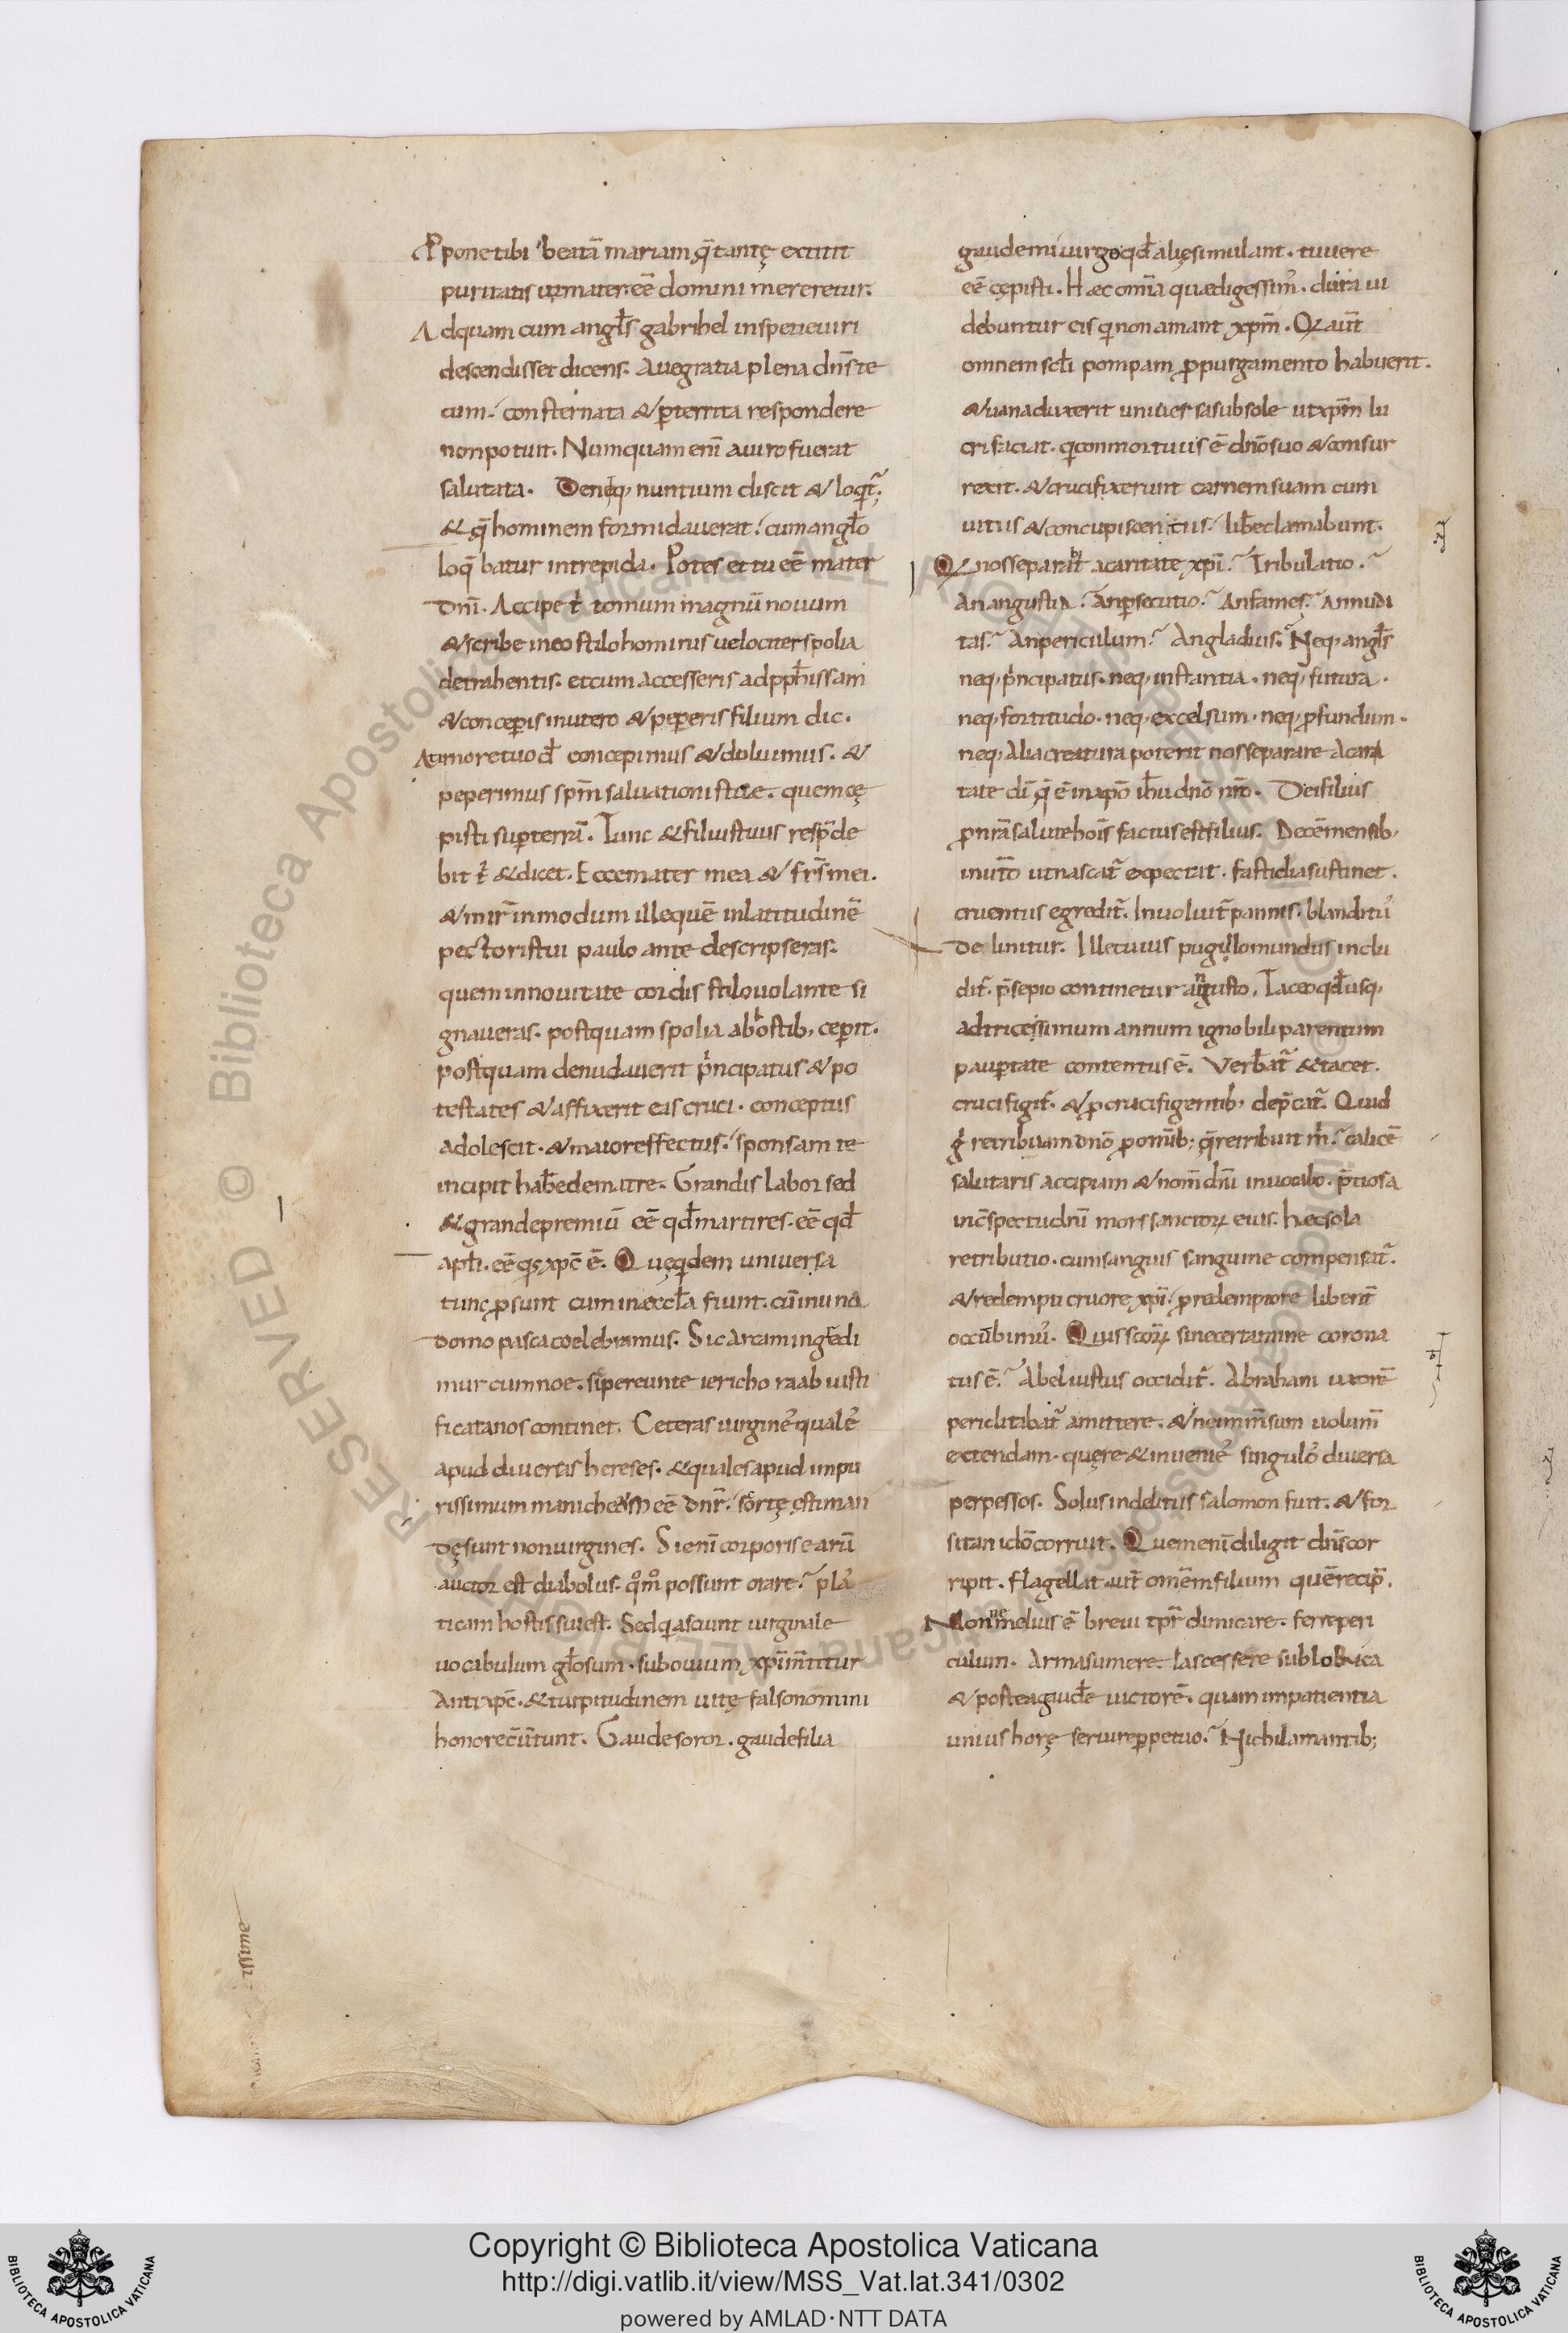 Pponetibi beatā mariam, q̄ tantę extitit
puritatis ut mater eē domini mereretur.
Adquam cum anglꝰs gabrihel inspecie uiri
descendisset dicens. Auegratia plena dn̄s te
cum. consternata & ꝑterrita respondere
nonpotuit. Numquam eni auiro fuerat
salutata. Deniq, nuntium discit & loqt̄.
& q̄ hominem formidauerat. cum anglo
loq̄batur intrepida. Potes et tu eē mater
dnī. Accipe t̄ tomum magnū nouum
& scribe ineo stilo hominis uelociter spolia
detrahentis. et cum accesseris ad pphissam
& conceꝑis inutero & peꝑeris filium dic.
A timore tuo dē concepimus & doluimus. &
peperimus spm saluationis tuae. quem cę
pisti suꝑ terrā. Tunc & filius tuus respōde
bit t̄ & dicet. Ecce mater mea & frs̄ mei.
& mir̄ inmodum ille quē inlatitudinē
pectoris tui paulo ante descripseras.
quem innouitate cordis stilo uolante si
gnaueras. postquam spolia ab hostib, ceꝑit.
postquam denudauerit pncipatus & po
testates & affixerit eas cruci. conceptus
adolescit. & maior effectus. sponsam te
incipit habe de matre. Grandis labor sed
& grande premiū eē qd martires. eē qd
apli. eē qd xpc ē. Quęqdem uniuersa
tunc ꝓsunt cum in eccla fiunt. cū in una
domo pasca coelebramus. Si carcam ingredi
mur cum noe. si pereunte iericho raab iusti
ficata nos continet. Ceteras uirgines quales
apud diuersas hereses. & quales apud impu
rissimum manicheū eē dnr̄. scortę ęstiman
dę sunt non uirgines. Si eni corporis earū
auctor est diabolus. qmo possunt orare? plas
ticam hostis sui est. Sed qa sciunt uirginale
uocabulum glosum. sub ouium
antixpc. & turpitudinem uitę falso nomini
honore cūtunt. Gaude soror. gaude filia
gaude mi uirgo qd alię simulant. tu uere
eē cępisti. Haec omia quae digessim. dura ui
debuntur eis qi non amant xpm. Q autē
omnem scli pompam ꝓ purgamento habuerit.
& uana duxerit uniuersa sub sole ut xpm lu
cri faciat. qi conmortuus ē dno suo & consur
rexit. & crucifixerunt carnem suam cum
uitiis & concupiscentiis. libe clamabunt.
Q nos separabt a caritate xpi? Tribulatio?
an angustia? an ꝑsecutio? an fames? an nudi
tas? an periculum? an gladius? Neq, anglꝰs
neq, pncipatus. neq, instantia. neq, futura.
neq, fortitudo. neq, excelsum. neq, ꝓfundum.
neq, alia creatura poterit nos separare a cari
tate dī q̄ ē in xpo ihu dno nro. Dei filius
ꝓ nra salute hois factus est filius. Decē mensib,
inuto ut nascat̄ expectat. fastidia sustinet.
cruentus egredit̄. Inuoluit̄ pannis. blanditiis
delinitur. Ille cuius pugillo mundus inclu
dit̄. psepio continetur angusto. Taceo qd usq,
ad tricessimum annum ignobili parentum
pauꝑtate contentus ē. Verbat̄ & tacet.
crucifigit̄. & ꝓ crucifigentib, depcat̄. Quid
g retribuam dno ꝓ omib; q̄ retribuit m? calicē
salutaris accipiam & nom dni inuocabo. ptiosa
in cspectu dni mors sanctorꝝ eius. hec sola
retributio. cum sanguis sanguine compensat̄.
& redempti cruore xpi. ꝓ redemptore libent̄
occumbimus. Quis scorꝝ sine certamine corona
tus ē? Abel iustus occidit̄. Abraham uxorē
periclitabat̄ amittere. & ne in inmsum uolum
extendam. quęre & inuenies singulos diuersa
perpessos. Solus in deliciis salomon fuit. & for
sitan ideo corruit. Quem eni diligit dns cor
ripit. Flagellat aut omem filium quē recipit.
Nonne melius ē breui tpr dimicare. ferre peri
culum. Arma sumere. lascessere sub lorica
& postea gaude uictorē. quam impatientia
unius horę seruire ꝑpetuo? Nichil amantib;
issime
Copyright © Biblioteca Apostolica Vaticana
http://digi.vatlib.it/view/MSS_Vat.lat.341/0302
powered by AMLAD·NTT DATA